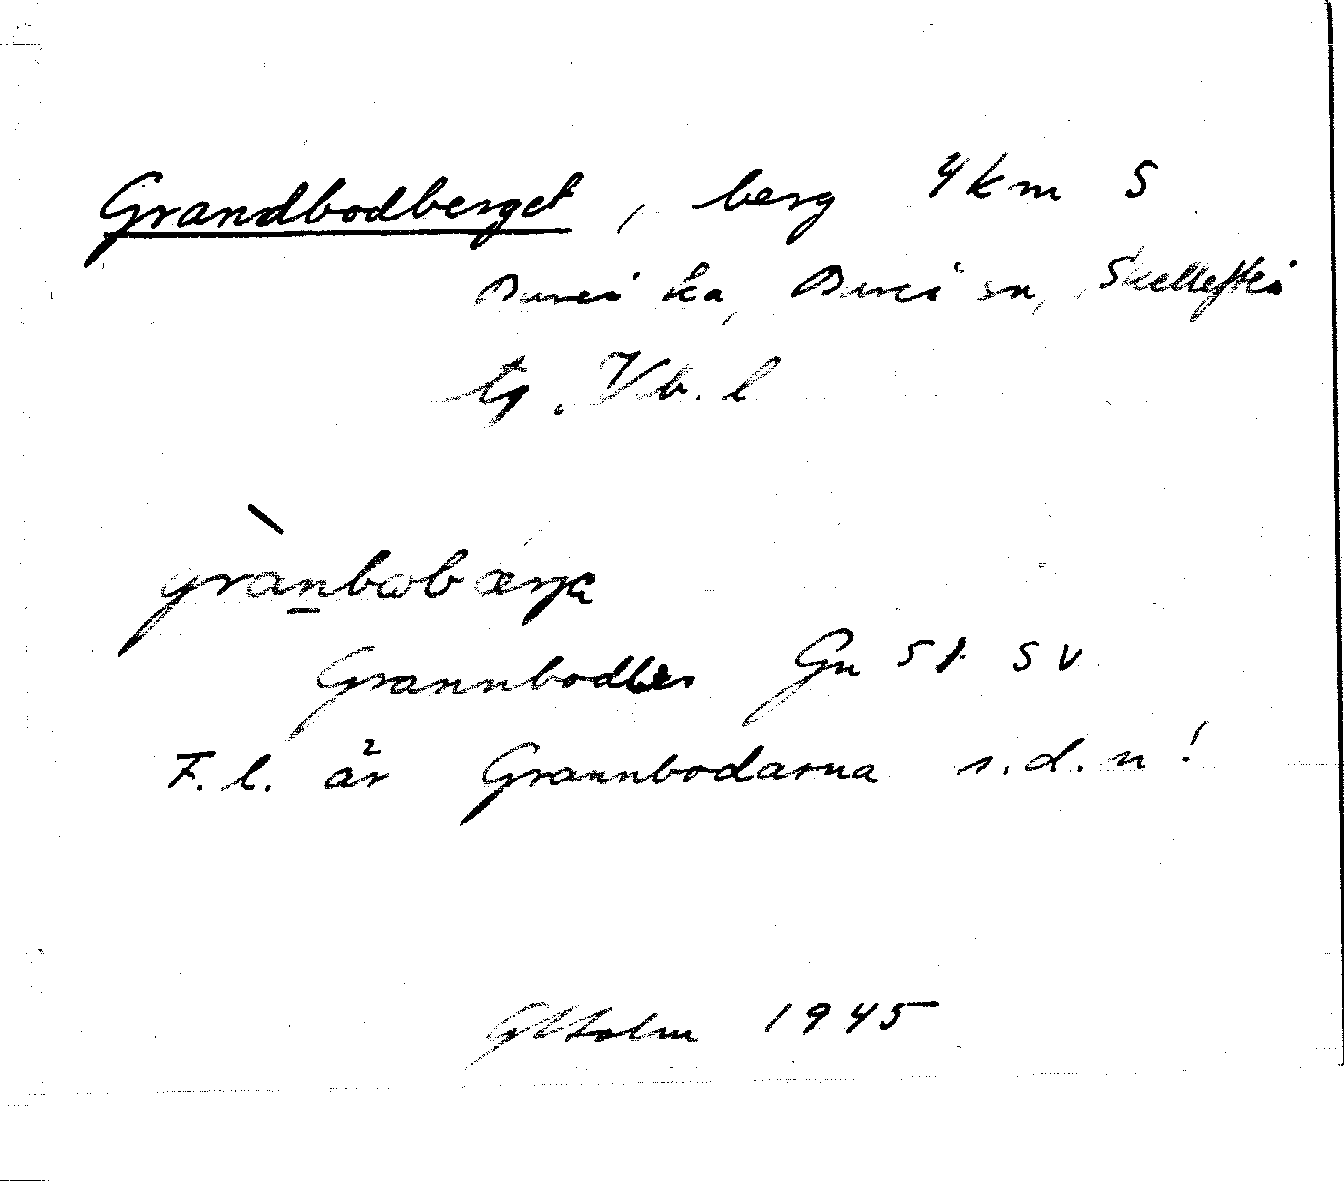 Grandbodberget, berg 4 km S
Bureå ka, Bureå sn, Skellefteå
tg. Vb. l
grànbωbærjε
Grannbodber Gn 51 SV
F.l. är Grannbodarna s.d.n!
GHolm 1945